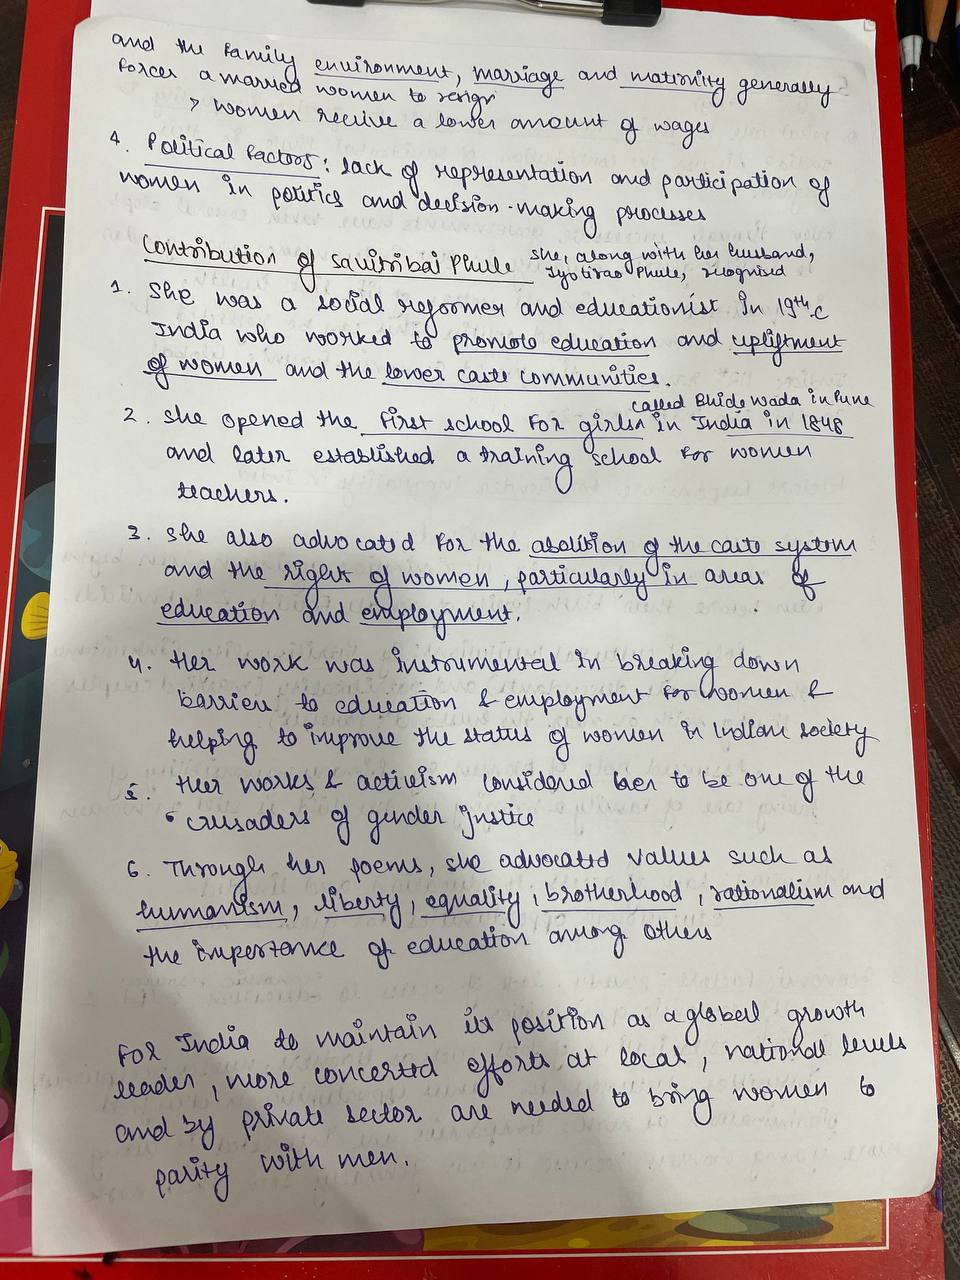 and the family environment, marriage and maternity generally
forces a married women to resign
> women receive a lower amount of wages
4. Political Factors: lack of representation and participation of
women in politics and decision-making processes
Contribution of Savitribai Phule she, along with her husband,
Jyotirao Phule, recognised
1. She was a social reformer and educationist in 19th c
India who worked to promote education and upliftment
of women and the lower caste communities.
called Bhide wada in Pune
2. She opened the First school For girls in India in 1848
and later established a training school for women
teachers.
3. She also advocated for the abolition of the caste system
and the rights of women, particularly in areas of
education and employment.
4. Her work was instrumental in breaking down
barriers to education & employment for women &
helping to improve the status of women in Indian society
5. Her works & activism considered her to be one of the
crusaders of gender justice
6. Through her poems, she advocated values such as
humanism, liberty, equality, brotherhood, rationalism and
the importance of education among others
For India to maintain its position as a global growth
leader, more concerted efforts at local, national levels
and by private sector are needed to bring women to
parity with men.